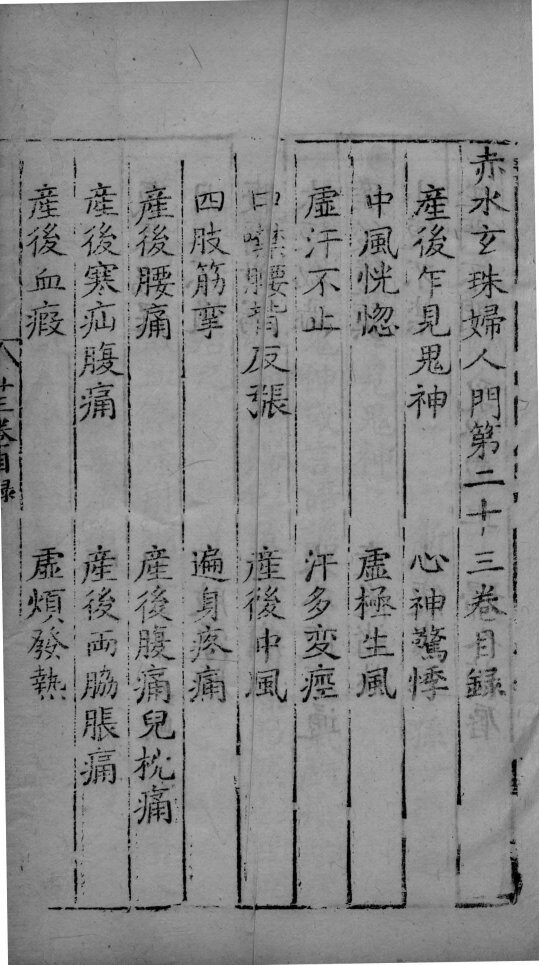 赤水玄珠婦人門第二十三卷目録
産後乍見鬼神　心神驚悸
中風恍惚　虛極生風
虛汗不止　汗多変痙
口噤腰背反張　産後中風
四肢筋攣　遍身疼痛
産後腰痛　産後腹痛兒枕痛
産後寒疝腹痛　産後両脇脹痛
産後血瘕　虛煩發熱
廿三卷目録